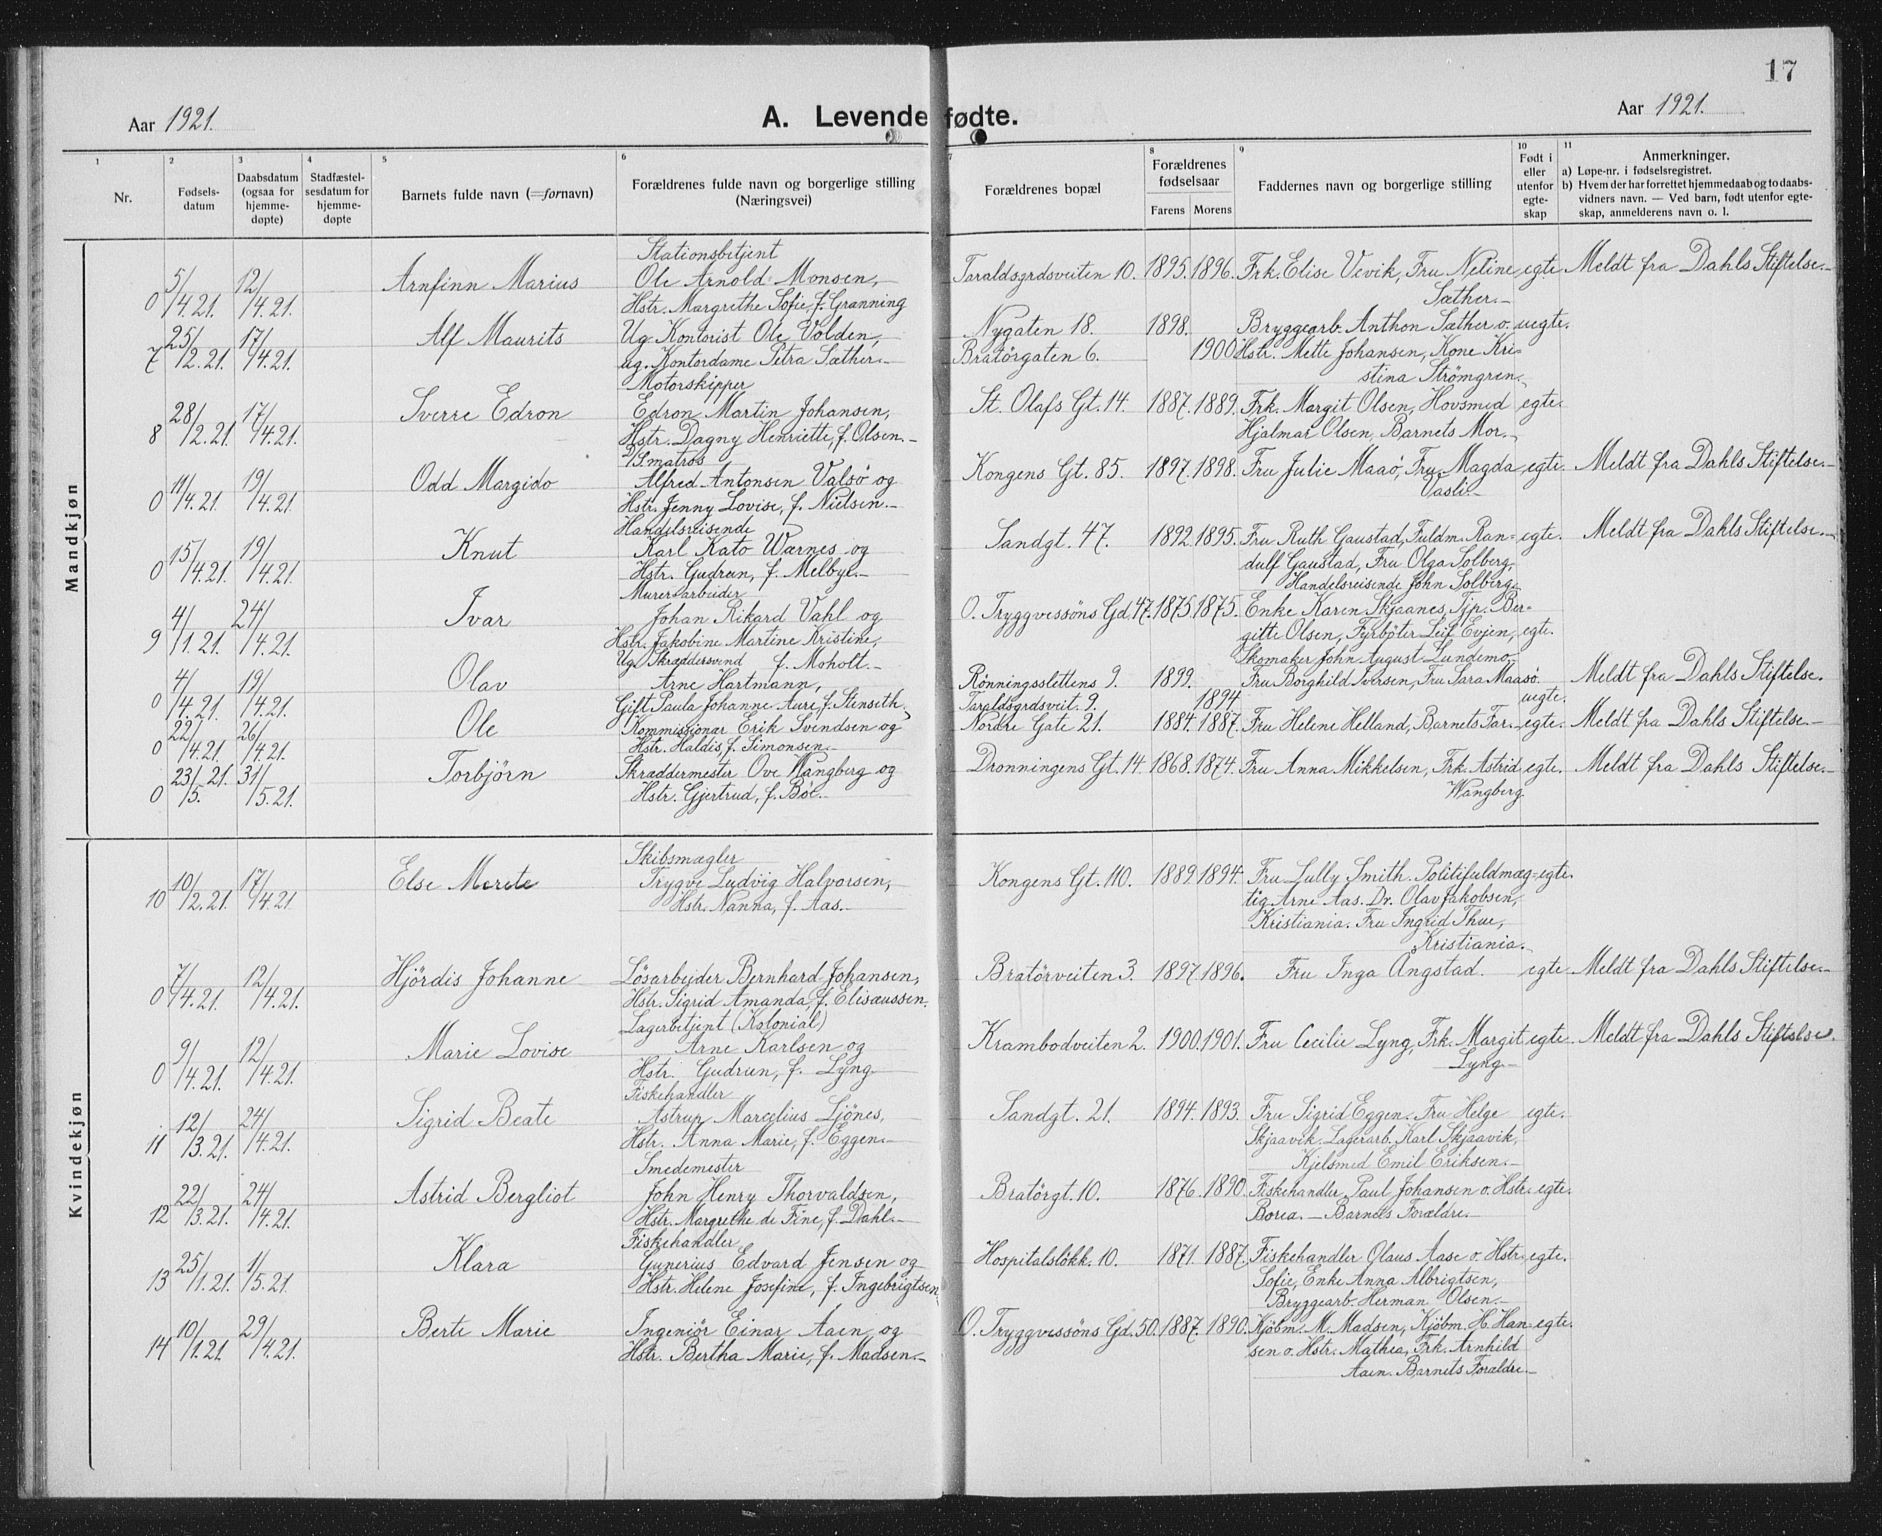 17
Aar 1921.
A. Levendefødte.
Aar 1921.
1
2
3
4
5
6
7
8
9
10
11
Nr.
Fødsels-
datum
Daabsdatum
(ogsaa for
hjemme-
døpte)
Stadfæstel-
sesdatum for
hjemme-
døpte
Barnets fulde navn (=fornavn)
Forældrenes fulde navn og borgerlige stilling
(Næringsvei)
Forældrenes bopæl
Forældrenes
fødselsaar
Farens
Morens
Faddernes navn og borgerlige stilling
Født i
eller
utenfor
egte-
skap
Anmerkninger.
a) Løpe-nr. i fødselsregistret.
b) Hvem der har forrettet hjemmedaab og to daabs-
vidners navn. — Ved barn, født utenfor egte-
skap, anmelderens navn o. l.
Mandkjøn
Stationsbetjent
0 5/4.21. 12/4.21. Arnfinn Marius Ole Arnold Monsen, Taraldsgrdsveiten 10. 1895. 1896. Frk. Elise Vevik, Fru Neline egte Meldt fra Dahls Stiftelse.-
Hstr. Margrethe Sofie f. Grønning Sæther.-
7 25/2.21. 17/4.21. Alf Maurits Ug. Kontorist Ole Volden, Nygaten 18. 1898. Bryggearb. Anthon Sæther o. uegte.
ug. Kontordame Petra Sæther.- Bratörgaten 6. 1900 Hstr. Mette Johansen, Kone Kri-
Motorskipper stina Strömgren.
8 28/2.21. 17/4.21. Sverre Edron Edron Martin Johansen, St. Olafs Gt. 14. 1887. 1889. Frk. Margit Olsen, Hovsmed egte.
Hstr. Dagny Henriette, f. Olsen.- Hjalmar Olsen, Barnets Mor.-
D/S. matros
0 11/4.21. 19/4.21. Odd Margido Alfred Antonsen Valsø og Kongens Gt. 85. 1897. 1898. Fru Julie Maaö, Fru Magda egte. Meldt fra Dahls Stiftelse.-
Hstr. Jenny Lovise, f. Nielsen.- Vasli.-
Handelsreisende
0 15/4.21. 19/4.21. Knut Karl Kato Wærnes og Sandgt. 47. 1892. 1895. Fru Ruth Gaustad, Fuldm. Ran- egte. Meldt fra Dahls Stiftelse.-
Hstr. Gudrun, f. Melbye.- dulf Gaustad, Fru Olga Solberg,
Murerarbeider Handelsreisende John Solberg.
9 4/1.21. 24/4.21. Ivar Johan Rikard Vahl og O. Tryggvessöns Gd. 47. 1875. 1875. Enke Karen Skjaanes, Tjp. Ber-
Hstr. Jakobine Martine Kristine, gitte Olsen, Fyrböter Leif Evjen, egte.
f. Moholt.- Skomaker John August Lundemo.-
Ug. Skræddersvend
0 4/4.21. 19/4.21. Olav Arne Hartmann, Rönningsslettens 9. 1899. Fru Borghild Iversen, Fru Sara Maasö. Meldt fra Dahls Stiftelse.
Gift Paula Johanne Aure, f. Stenseth. Taraldsgrdsveit. 9. 1894 uegte.
0 22/4.21. 26/4.21. Ole Kommissionær Erik Svendsen og Nordre Gate 21. 1884. 1887. Fru Helene Helland, Barnets Far.- egte. Meldt fra Dahls Stiftelse.-
Hstr. Haldis, f. Simonsen.-
0 23/5.21. 31/5.21. Torbjörn Skræddermester Ove Wangberg og Dronningens Gt. 14. 1868. 1874. Fru Anna Mikkelsen, Frk. Astrid egte. Meldt fra Dahls Stiftelse.-
Hstr. Gjertrud, f. Böe.- Wangberg.
Kvindekjøn
Skibsmægler
10 10/2.21. 17/4.21 Else Merete Trygve Ludvig Halvorsen, Kongens Gt. 110. 1889. 1894. Fru Lully Smith. Politifuldmæg- egte.
Hstr. Nanna, f. Aas.- tig Arne Aas. Dr. Olav Jakobsen,
Kristiania. Fru Ingrid Thue,
Kristiania.-
0 7/4.21. 12/4.21. Hjördis Johanne Lösarbejder Bernhard Johansen, Bratörveiten 3. 1897. 1896. Fru Inga Angstad. egte Meldt fra Dahls Stiftelse.-
Hstr. Sigrid Amanda, f. Elisæussen.
Lagerbetjent (Kolonial)
0 9/4.21. 12/4.21. Marie Lovise Arne Karlsen og Krambodveiten 2. 1900. 1901. Fru Cecilie Lyng, Frk. Margit egte Meldt fra Dahls Stiftelse.
Hstr. Gudrun, f. Lyng.- Lyng.-
Fiskehandler
11 12/3.21. 24/4.21. Sigrid Beate Astrup Marcelius Ljönes, Sandgt. 21. 1894. 1893. Fru Sigrid Eggen. Fru Helge egte.
Hstr. Anna Marie, f. Eggen.- Skjaavik. Lagerarb. Karl Skjaavik,
Smedemester Kjelsmed Emil Eriksen.-
12 22/3.21. 24/4.21. Astrid Bergliot John Henry Thorvaldsen, Bratörgt. 10. 1876. 1890. Fiskehandler Paul Johansen o. Hstr. egte.
Hstr. Margrethe de Fine, f. Dahl.- Borea. - Barnets Forældre.-
Fiskehandler
13 25/1.21. 1/5.21. Klara Gunerius Edvard Jensen og Hospitalslökk. 10. 1871. 1887. Fiskehandler Olaus Aase o. Hstr. egte.
Hstr. Helene Josefine, f. Ingebrigtsen Sofie, Enke Anna Albrigtsen,
Bryggearb. Herman Olsen.-
14 10/1.21. 29/4.21. Berte Marie Ingeniör Einar Aaen og O. Tryggvessöns Gd. 50. 1887. 1890. Kjöbm. M. Madsen, Kjöbm. H. Han- egte.
Hstr. Bertha Marie, f. Madsen.- sen o. Hstr. Mathea, Frk. Arnhild
Aaen. Barnets Forældre.-